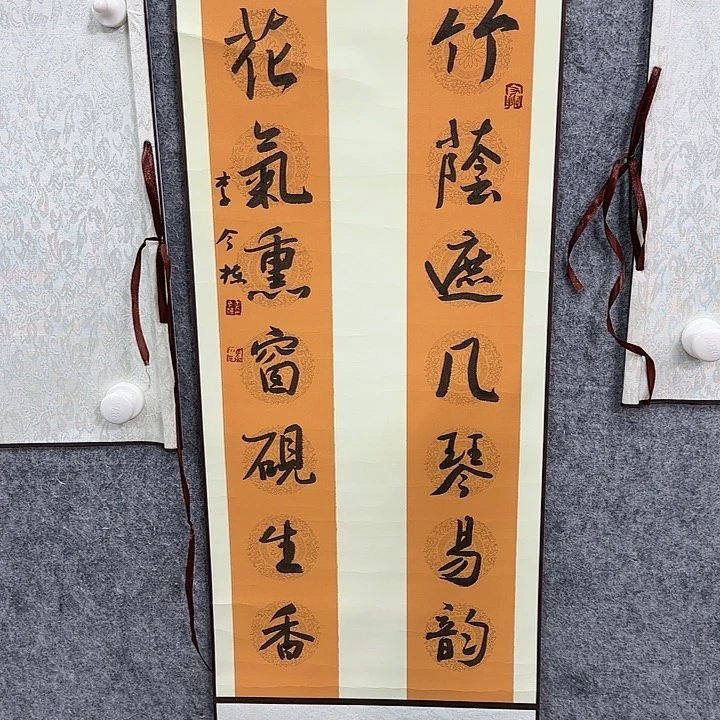 竹蔭遮几琴易韵
花氣熏窗硯生香
李今枝